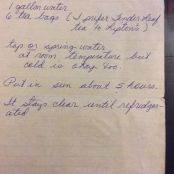 1 gallon water
6 tea bags (I prefer Tender Leaf
tea to Lipton's)
tap or spring water
at room temperature but
cold is okay too.
Put in sun about 5 hours.
It stays clear until refridger-
ated